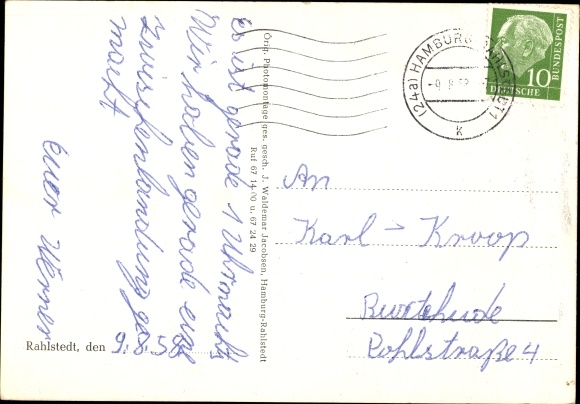 Es ist gerade 1 Uhr nachts
Wir haben gerade eine
Zwischenlandung ge-
macht
Euer Werner
Rahlstedt, den 9.8.58
Orig. Photomontage ges. gesch. J. Waldemar Jacobsen, Hamburg-Rahlstedt
Ruf 67 14 00 u. 67 24 29
(24a) HAMBURG-RAHLSTEDT 1
k
10
DEUTSCHE
BUNDESPOST
An
Karl - Kroop
Buxtehude
Pohlstraße 4